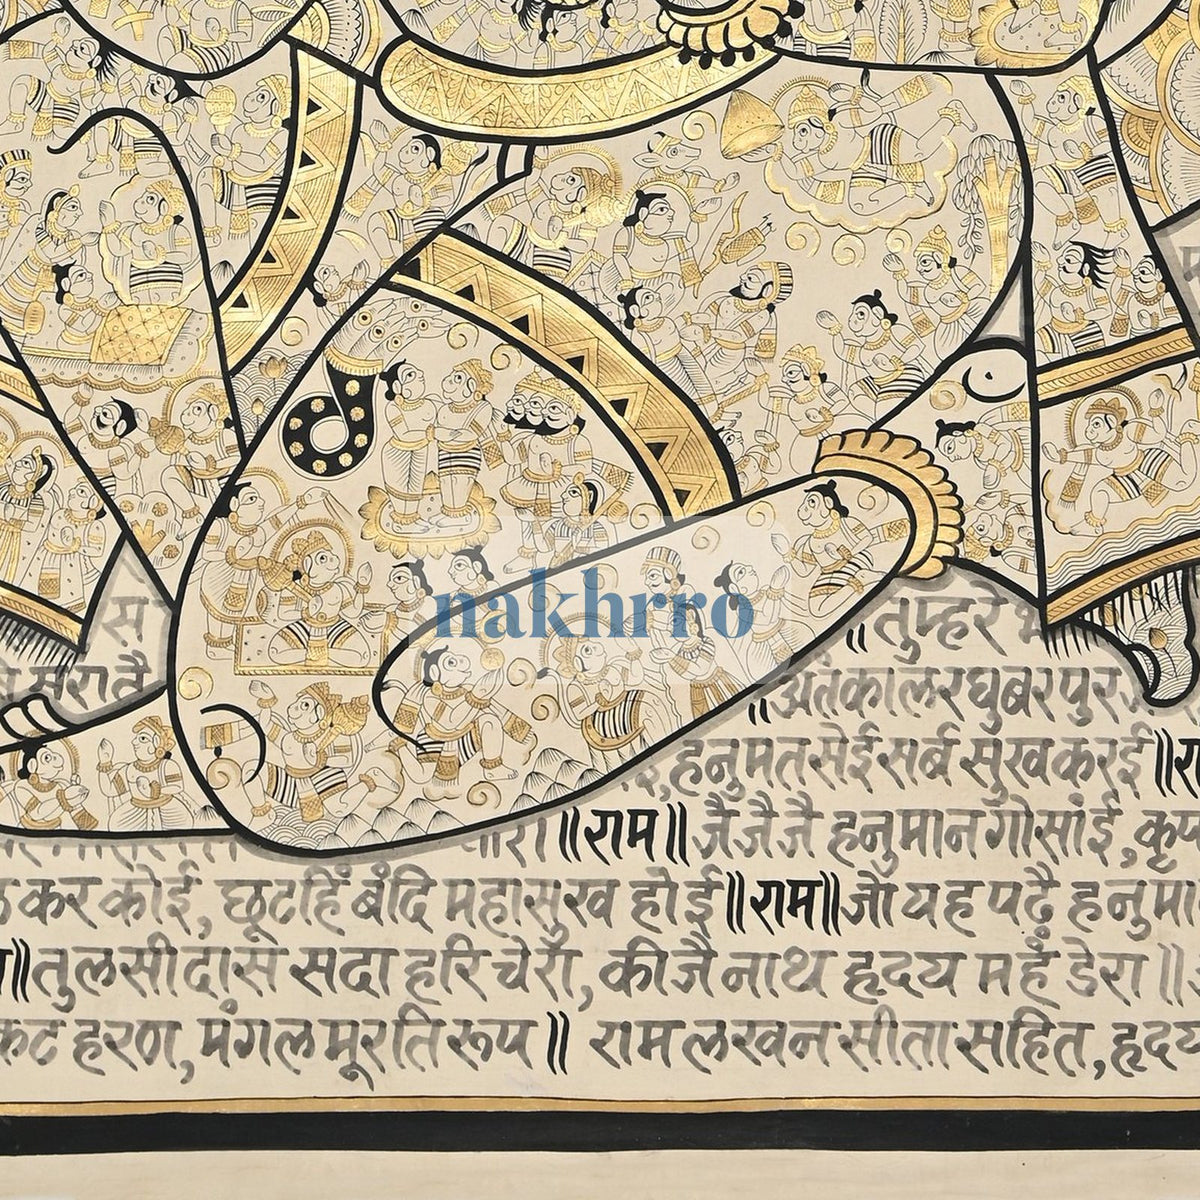 nakhrro
॥तुम्हरे
अंतकाल रघुबर पुर
हनुमत सेई सर्ब सुख करई॥
॥राम॥ जै जै जै हनुमान गोसांई,
कर कोई, छूटहिं बंदि महासुख होई॥राम॥जो यह पढ़ै
॥तुलसीदास सदा हरि चेरा, कीजै नाथ हृदय महं डेरा॥
हरण, मंगल मूरति रूप॥ राम लखन सीता सहित,